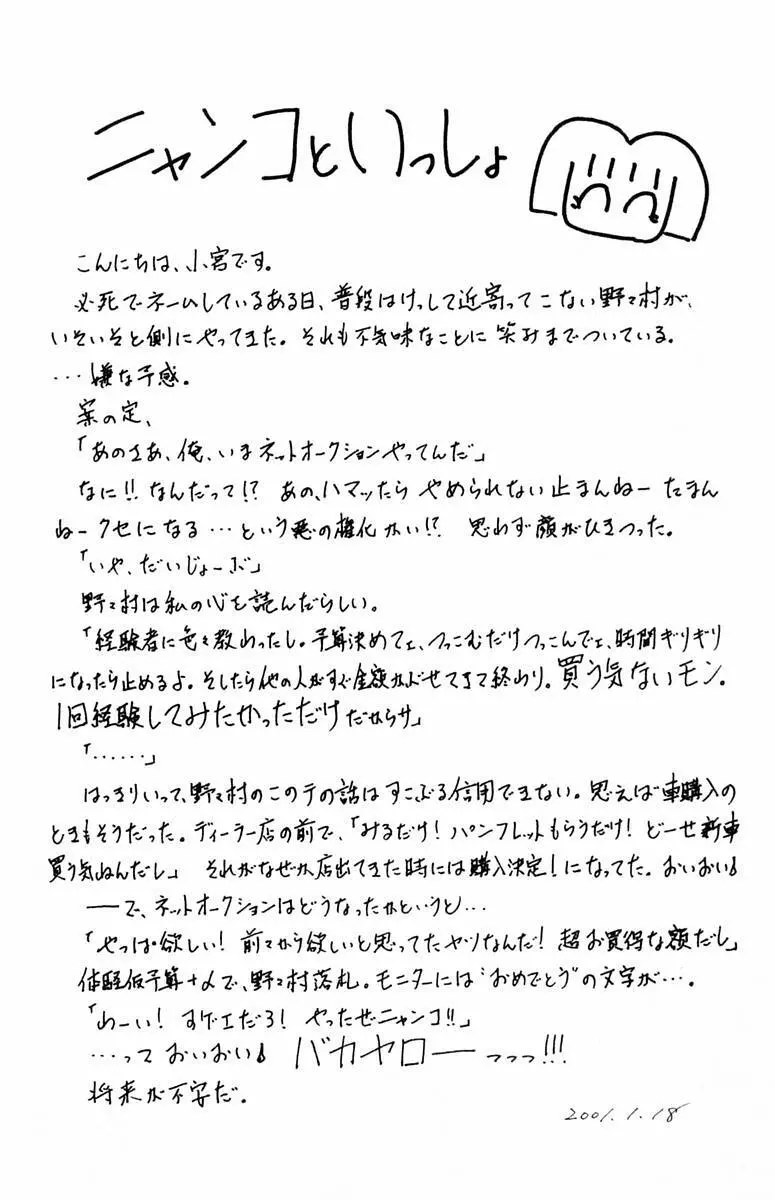 ニャンコといっしょ
こんにちは、小宮です。
必死でネームしているある日、普段はけっして近寄ってこない野々村が、
いそいそと側にやってきた。それも不気味なことに笑みまでついている。
…嫌な予感。
案の定、
「あのさあ、俺、いまネットオークションやってんだ」
なに!!なんだって!?あの、ハマッたらやめられない止まんねーたまん
ねークセになる…という悪の権化かい!?思わず顔がひきつった。
「いや、だいじょーぶ」
野々村は私の心を読んだらしい。
「経験者に色々教わったし。予算決めてェ、つっこむだけつっこんでェ、時間ギリギリ
になったら止めるよ。そしたら他の人がすぐ金額かぶせてきて終わり。買う気ないモン。
1回経験してみたかっただけだからサ」
「……」
はっきりいって、野々村のこのテの話はすこぶる信用できない。思えば車購入の
ときもそうだった。ディーラー店の前で、「みるだけ!パンフレットもらうだけ!どーせ新車
買う気ねんだし」それがなぜか店出てきた時には購入決定!になってた。おいおい♪
──で、ネットオークションはどうなったかというと…
「やっぱ欲しい!前々から欲しいと思ってたヤツなんだ!超お買得な額だし」
予算+αで、野々村落札。モニターには"おめでとう"の文字が…。
「わーい!すげェだろ!やったぜニャンコ!!」
…っておいおい♪バカヤローっっっ!!!
将来が不安だ。
2001.1.18